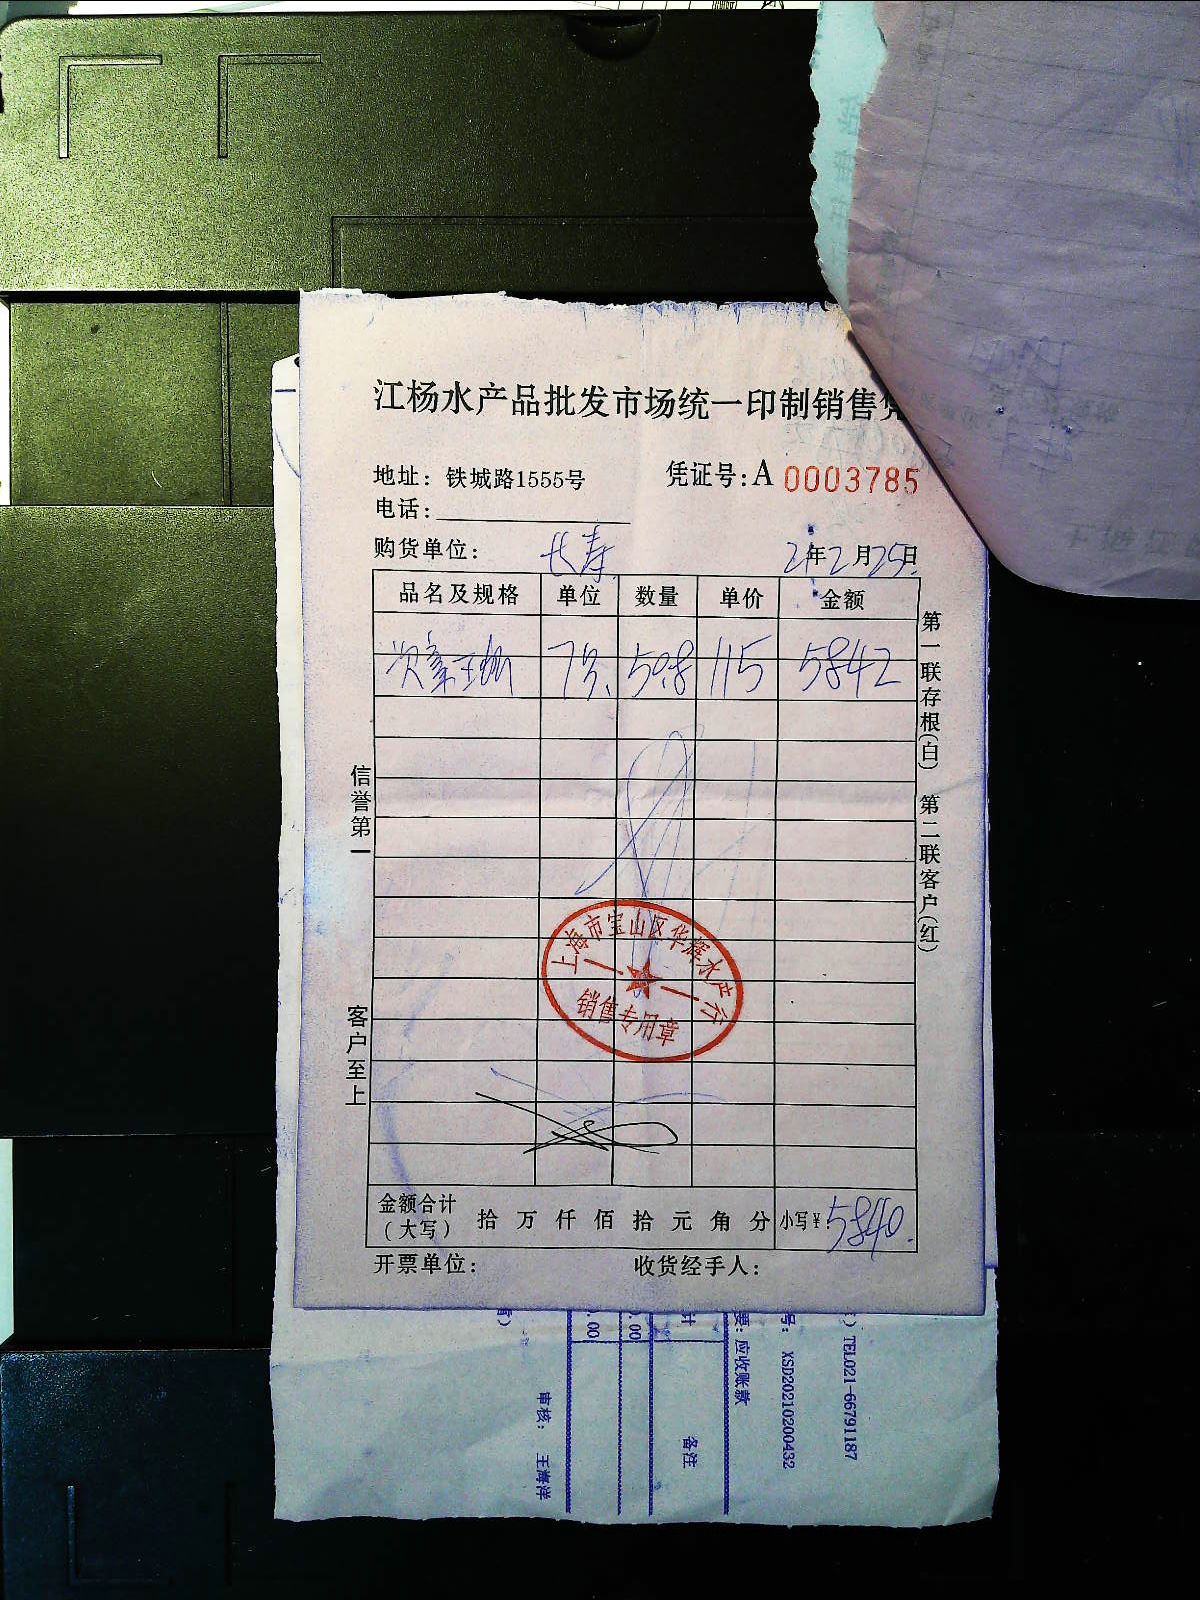 江杨水产品批发市场统一印制销售凭
地址：铁城路1555号
凭证号：A 0003785
电话：
购货单位： 长寿
2年2月25日
品名及规格 单位 数量 单价 金额
50.8 115 5842
信誉第一
客户至上
第一联存根(白) 第二联客户(红)
上海市宝山区华辉水产行
销售专用章
金额合计
(大写)
拾 万 仟 佰 拾 元 角 分 小写¥: 5840.
开票单位： 收货经手人：
TEL021-66791187
号: XSD20210200432
要: 应收账款
计 备注
.00
.00
审核: 王海洋